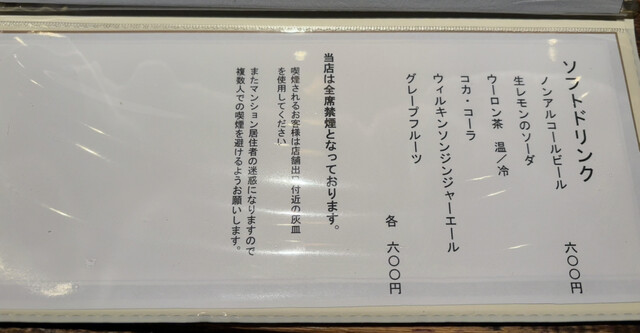 ソフトドリンク
ノンアルコールビール 六〇〇円
生レモンのソーダ
ウーロン茶 温／冷
コカ・コーラ
ウィルキンソンジンジャーエール
グレープフルーツ
各 六〇〇円
当店は全席禁煙となっております。
喫煙されるお客様は店舗出口付近の灰皿
を使用してください
またマンション居住者の迷惑になりますので
複数人での喫煙を避けるようお願いします。